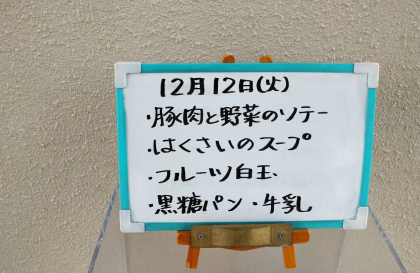 12月12日(火)
・豚肉と野菜のソテー
・はくさいのスープ
・フルーツ白玉
・黒糖パン・牛乳